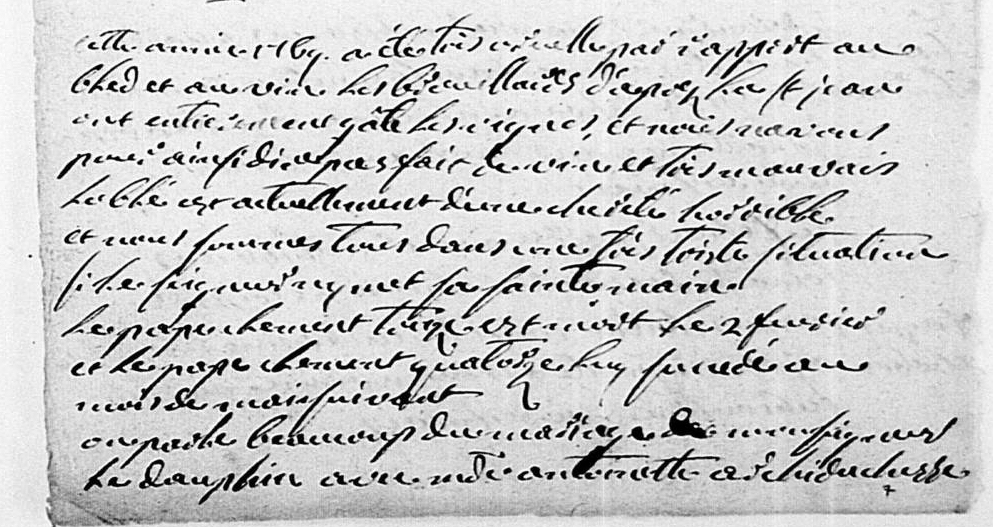 cette année 1769. a été très cruelle par rapport au
bled et au vin les brouillards d'apres la st jean
ont entierement gâté les vignes, et nous navons
pour ainsi dire pas fait de vin et très mauvais
le blé est actuellement d'une cherté horrible
et nous sommes tous dans une très triste situation
si le seigneur ny met sa sainte main
le pape clement treize est mort le 2 fevrier
et le pape clement quatorze luy succede au
mois de mai suivant
on parle beaucoup du mariage de monseigneur
le dauphin avec mde antoinette archiduchesse